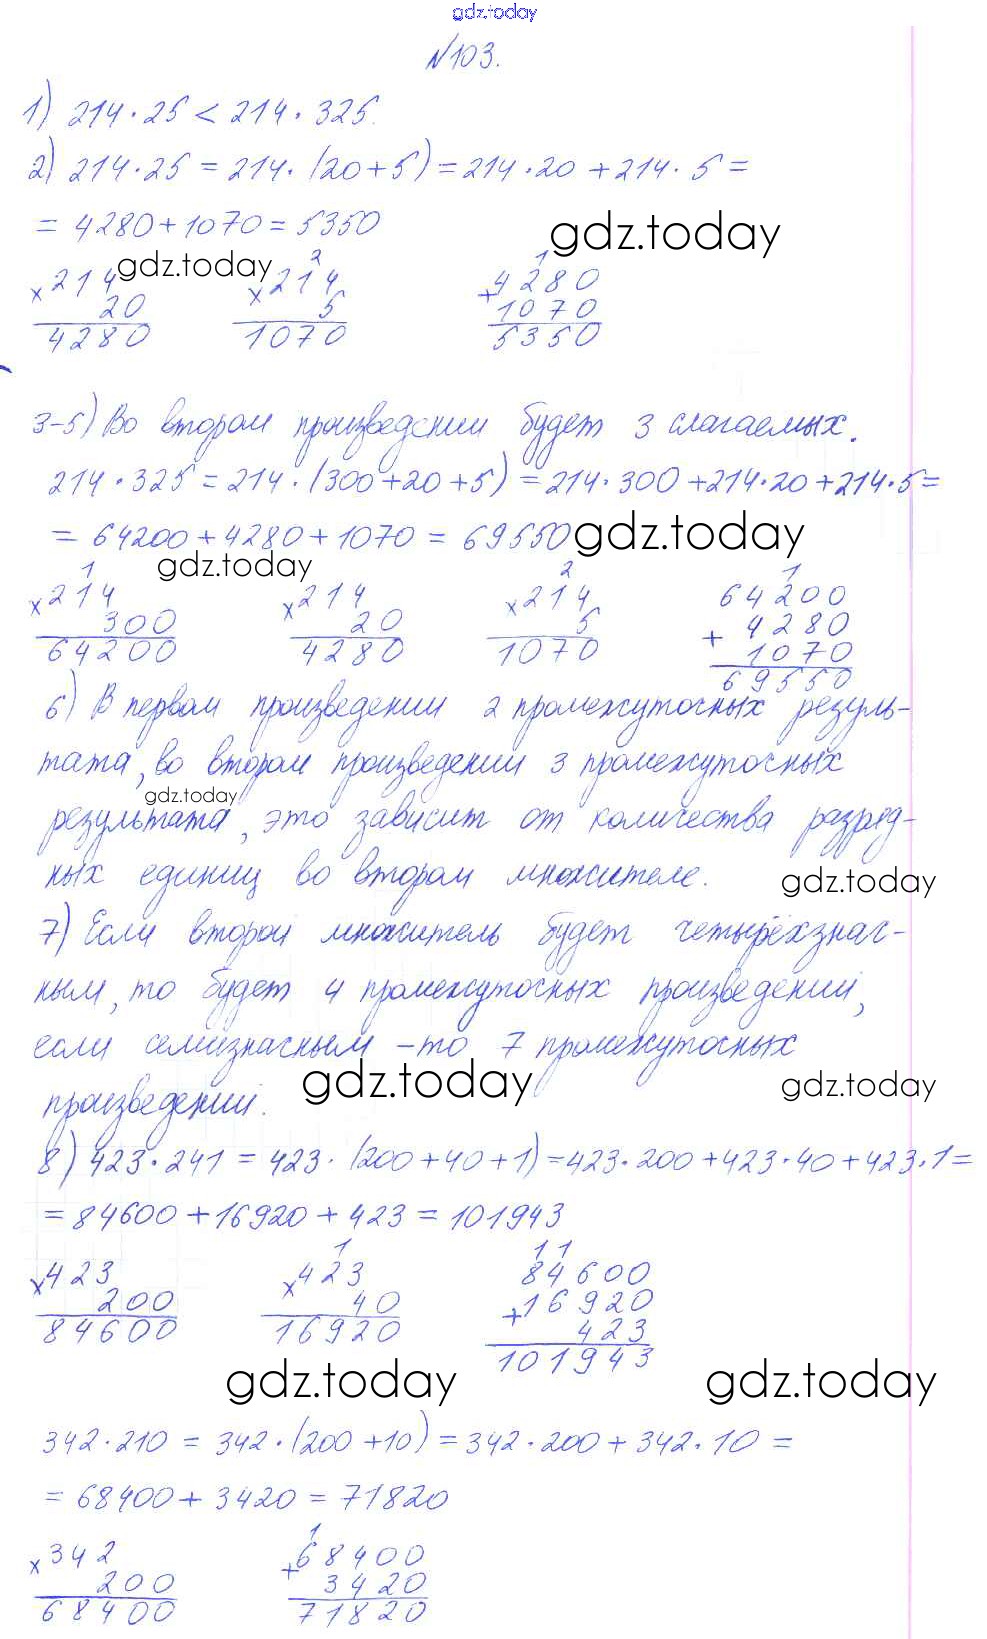 gdz.today
№103.
1) 214·25 < 214·325.
2) 214·25 = 214·(20+5) = 214·20 + 214·5 =
= 4280+1070 = 5350
gdz.today
gdz.today
2 1
×214 ×214 +4280
20 5 1070
4280 1070 5350
3-5) Во втором произведении будет 3 слагаемых.
214·325 = 214·(300+20+5) = 214·300+214·20+214·5=
= 64200+4280+1070 = 69550
gdz.today
gdz.today
1 2 1
×214 ×214 ×214 64200
300 20 5 + 4280
64200 4280 1070 1070
69550
6) В первом произведении 2 промежуточных резуль-
тата, во втором произведении 3 промежуточных
gdz.today
результата, это зависит от количества разряд-
ных единиц во втором множителе.
gdz.today
7) Если второй множитель будет четырёхзнач-
ным, то будет 4 промежуточных произведений,
если семизначным – то 7 промежуточных
gdz.today
gdz.today
произведений.
8) 423·241 = 423·(200+40+1)=423·200+423·40+423·1=
= 84600+16920+423 = 101943
1 11
×423 ×423 84600
200 40 +16920
84600 16920 423
101943
gdz.today
gdz.today
342·210 = 342·(200+10) = 342·200+342·10 =
= 68400+3420 = 71820
1
×342 +68400
200 3420
68400 71820